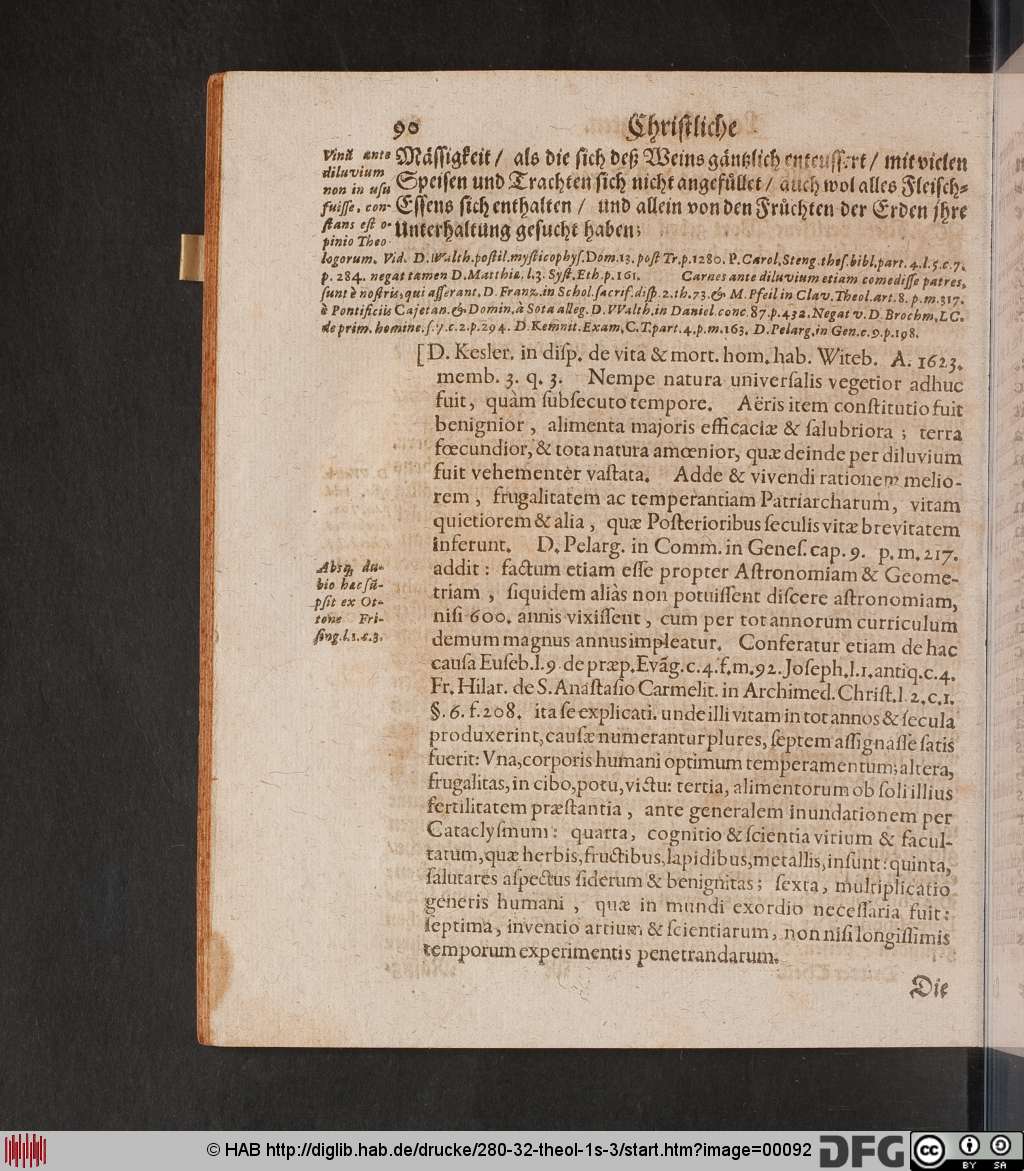 90 Christliche
Mässigkeit / als die sich deß Weins gäntzlich enteussert / mit vielen
Speisen und Trachten sich nicht angefüllet / auch wol alles Fleisch⸗
Essens sich enthalten / und allein von den Früchten der Erden jhre
Unterhaltung gesucht haben;
Vinū ante
diluvium
non in usu
fuisse, con-
stans est o-
pinio Theo
logorum. Vid. D. Walth. postil. mysticophys. Dom. 13. post Tr. p. 1280. P. Carol. Steng. thes. bibl. part. 4. l. 5. c. 7.
p. 284. negat tamen D. Matthiæ, l. 3. Syst. Eth. p. 161. Carnes ante diluvium etiam comedisse patres,
sunt è nostris, qui asserant. D. Franz. in Schol. sacrif. disp. 2. th. 73. & M. Pfeil in Clav. Theol. art. 8. p. m. 317.
è Pontificiis Cajetan. & Domin. à Sota alleg. D. VValth. in Daniel. conc. 87. p. 432. Negat v. D. Brochm. LC.
de prim. homine. s. 7. c. 2. p. 294. D. Kemnit. Exam. C. T. part. 4. p. m. 163. D. Pelarg. in Gen. c. 9. p. 198.
[D. Kesler. in disp. de vita & mort. hom. hab. Witeb. A. 1623.
memb. 3. q. 3. Nempe natura universalis vegetior adhuc
fuit, quàm subsecuto tempore. Aëris item constitutio fuit
benignior, alimenta majoris efficaciæ & salubriora; terra
fœcundior, & tota natura amœnior, quæ deinde per diluvium
fuit vehementer vastata. Adde & vivendi rationem melio-
rem, frugalitatem ac temperantiam Patriarcharum, vitam
quietiorem & alia, quæ Posterioribus seculis vitæ brevitatem
inferunt. D. Pelarg. in Comm. in Genes. cap. 9. p. m. 217.
addit: factum etiam esse propter Astronomiam & Geome-
triam, siquidem aliàs non potuissent discere astronomiam,
nisi 600. annis vixissent, cum per tot annorum curriculum
demum magnus annus impleatur. Conferatur etiam de hac
causa Euseb. l. 9 de præp. Evāg. c. 4. f. m. 92. Joseph. l. 1. antiq. c. 4.
Fr. Hilar. de S. Anastasio Carmelit. in Archimed. Christ. l 2. c. 1.
§. 6. f. 208. ita se explicati. unde illi vitam in tot annos & secula
produxerint, causæ numerantur plures, septem assignasse satis
fuerit: Vna, corporis humani optimum temperamentum; altera,
frugalitas, in cibo, potu, victu: tertia, alimentorum ob soli illius
fertilitatem præstantia, ante generalem inundationem per
Cataclysmum: quarta, cognitio & scientia virium & facul-
tatum, quæ herbis, fructibus, lapidibus, metallis, insunt: quinta,
salutares aspectus siderum & benignitas; sexta, multiplicatio
generis humani, quæ in mundi exordio necessaria fuit:
septima, inventio artium & scientiarum, non nisi longissimis
temporum experimentis penetrandarum.
Absq, du-
bio hæc sū-
psit ex Ot-
tone Fri-
sing. l. 1. c. 3.
Die
© HAB http://diglib.hab.de/drucke/280-32-theol-1s-3/start.htm?image=00092 DFG cc BY SA